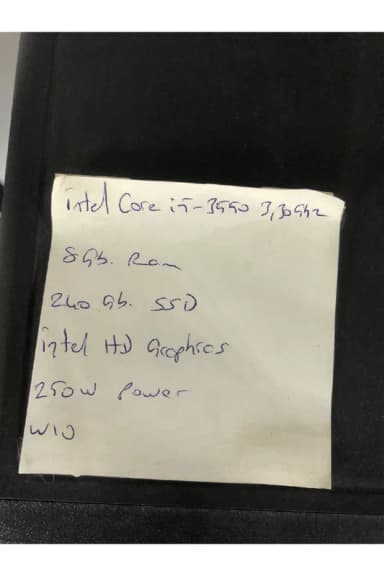 intel Core i5-3550 3,30Ghz
8 Gb. Ram
240 Gb. SSD
intel HD Graphics
250W Power
W10